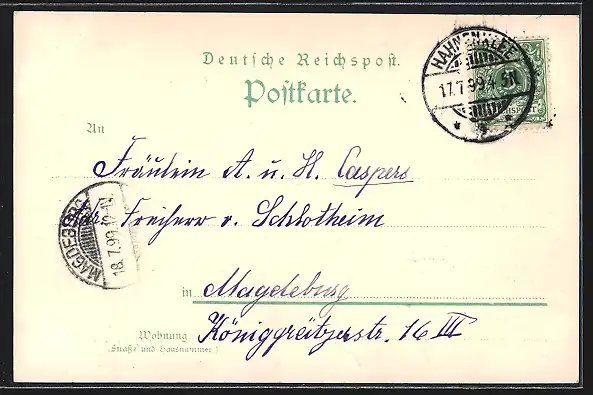 Deutsche Reichspost.
Postkarte.
HAHNENKLEE
17.7.99.4-5N
An
Fräulein A. u. H. Caspers
Freiherr v. Schlotheim
MAGDEBURG
18.7.99.
in Magdeburg
Wohnung Königgrätzerstr. 16 III
(Straße und Hausnummer)